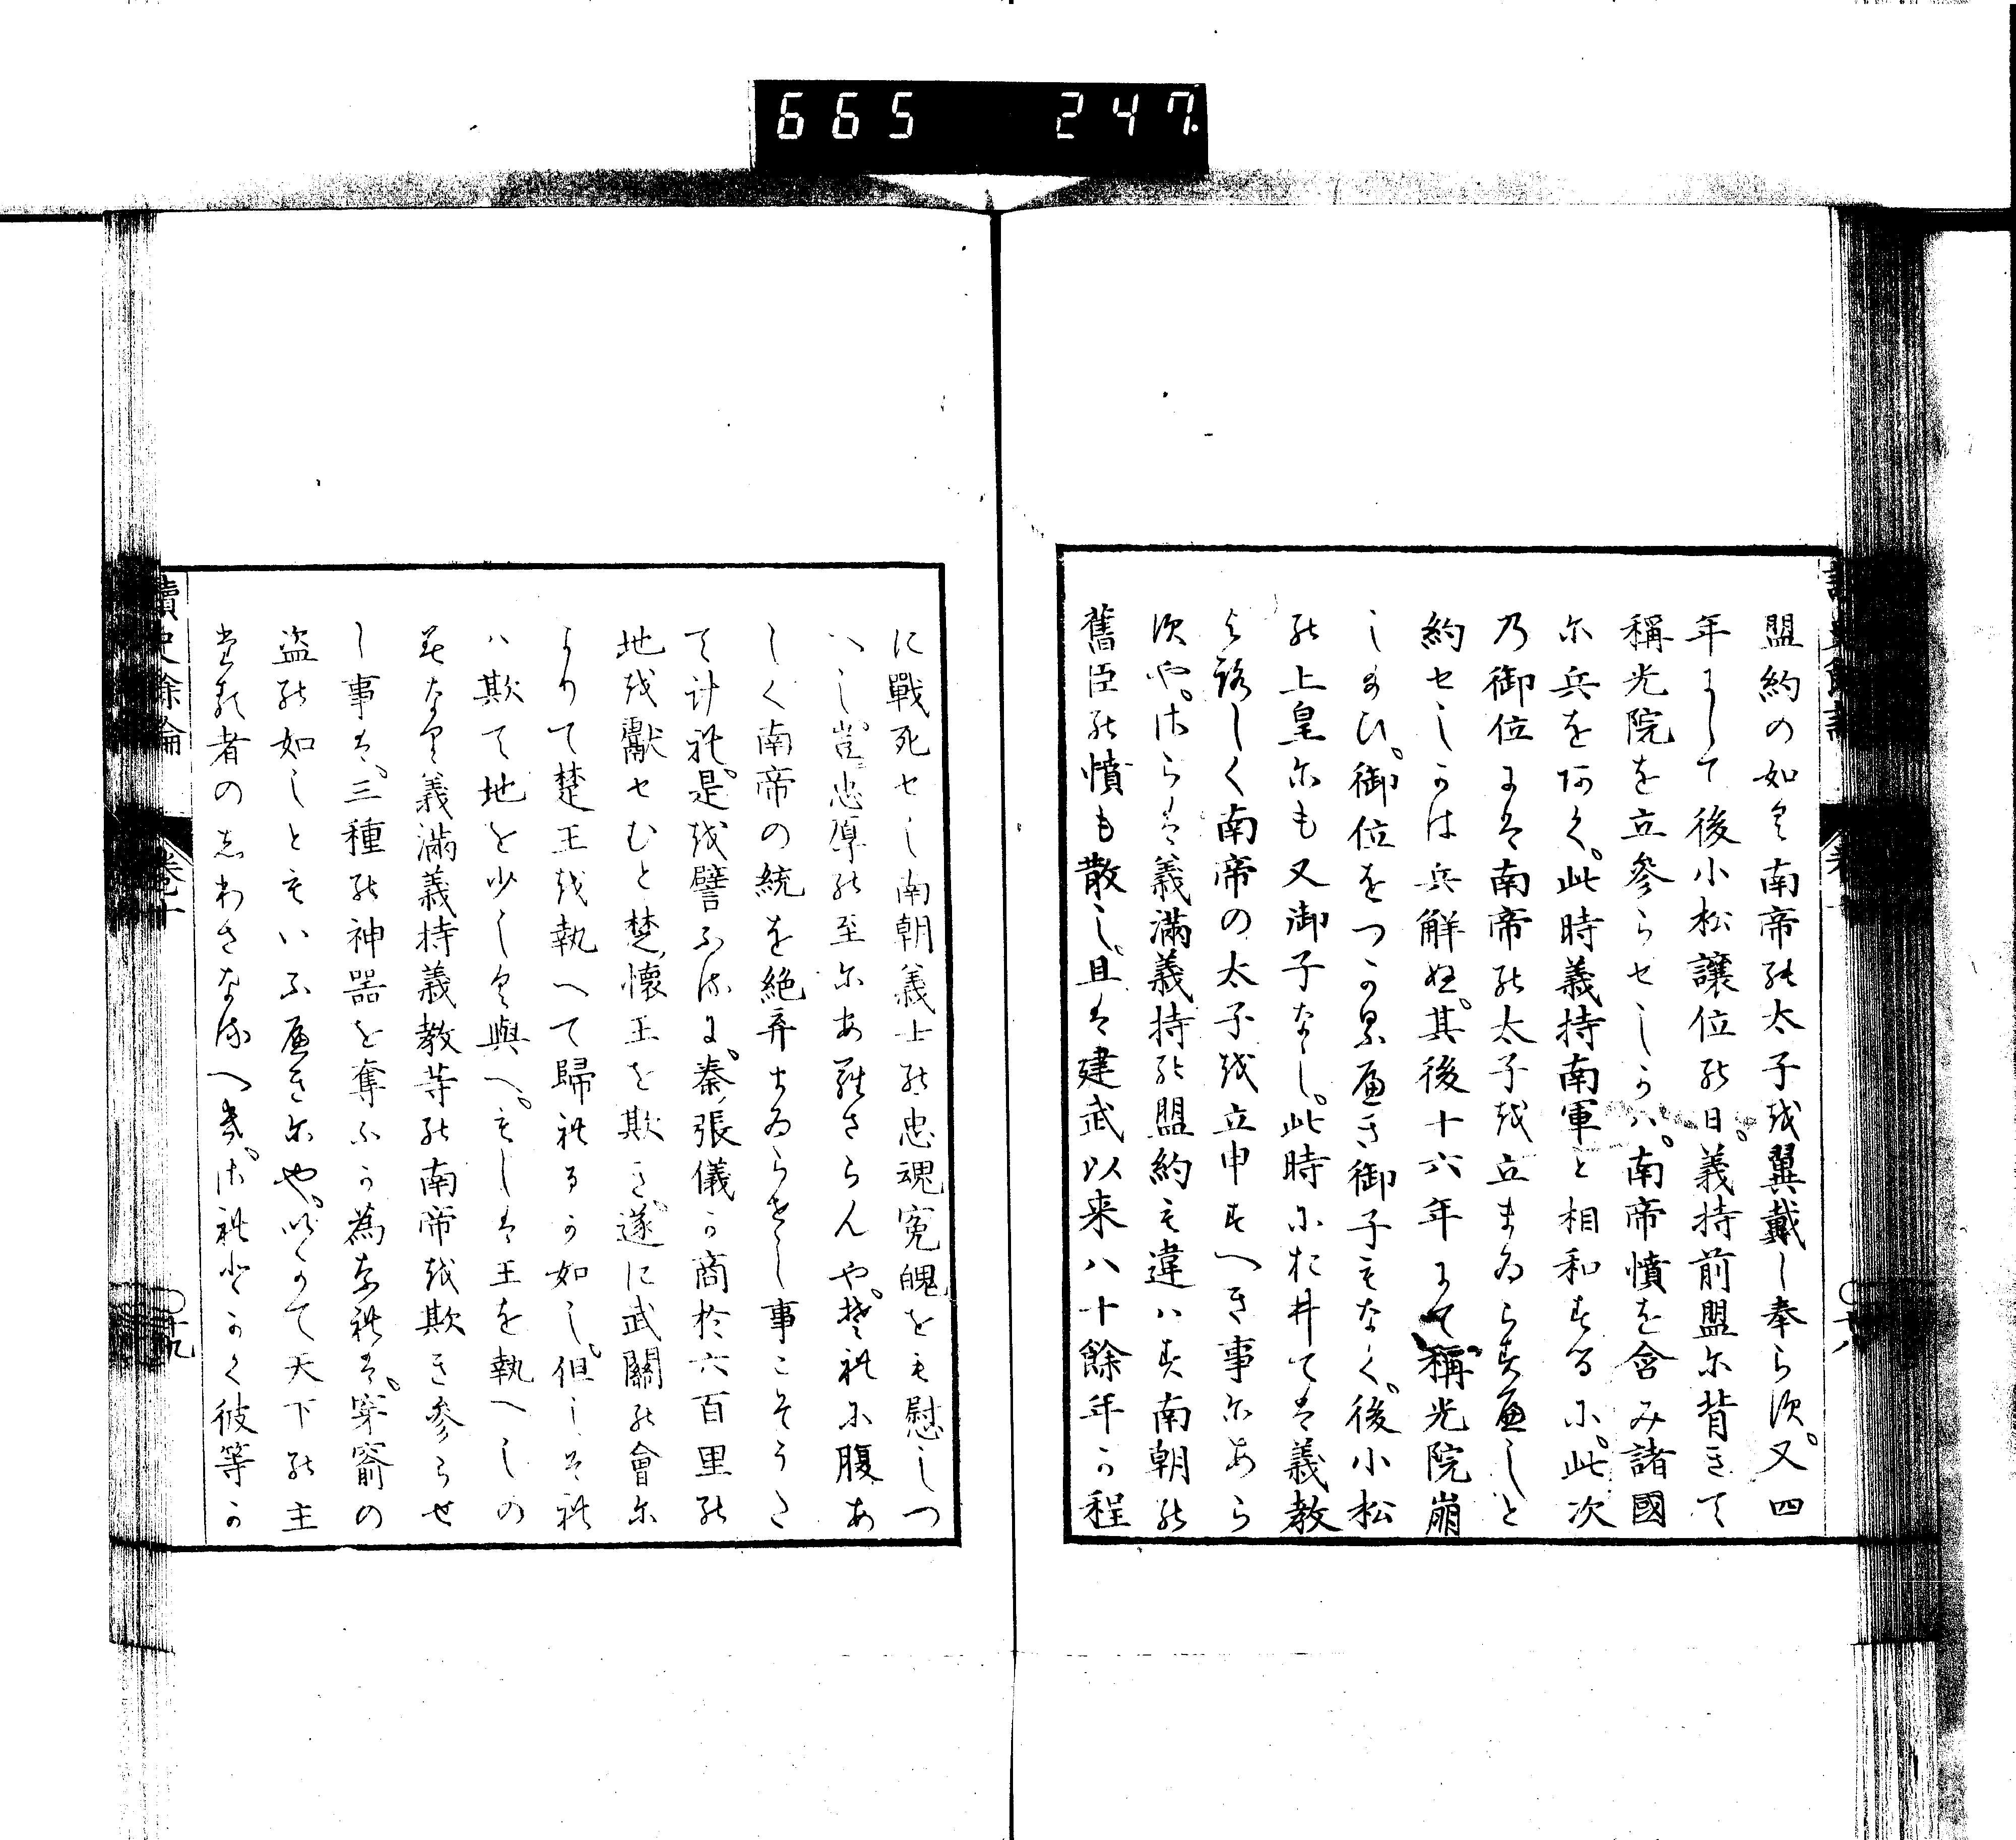 665 247
盟約の如く南帝の太子を翼戴し奉らす。又四
年にして後小松譲位の日。義持前盟に背きて
稱光院を立參らせしかハ。南帝憤を含み諸國
に兵をあく。此時義持南軍と相和するに。此次
乃御位には南帝の太子を立まゐらすへしと
約せしかは兵解ぬ。其後十六年にて稱光院崩
しぬひ。御位をつかるへき御子もなく。後小松
の上皇にも又御子なし。此時におゐては義教
よろしく南帝の太子を立申すへき事にあら
すや。さらは義滿義持の盟約も違ハす南朝の
舊臣の憤も散し。且は建武以来八十餘年か程
に戰死せし南朝義士の忠魂寃魄をも慰しつ
へし。豈忠厚の至にあらさらんや。それに腹あ
しく南帝の統を絶弃まゐらせし事こそうた
て計れ。是を譬ふるに。秦張儀か商於六百里の
地を獻せむと楚懷王を欺き。遂に武關の會に
よりて楚王を執へて歸れるか如し。但しそれ
ハ欺て地を少しく與へ。もしは王を執へしの
みなり義滿義持義教等の南帝を欺き參らせ
し事は。三種の神器を奪ふか為なれは。穿窬の
盗の如しともいふへきにや。いかて天下の主
たる者のしわさなるへき。されとかく彼等か
讀史餘論 卷十 〇十九